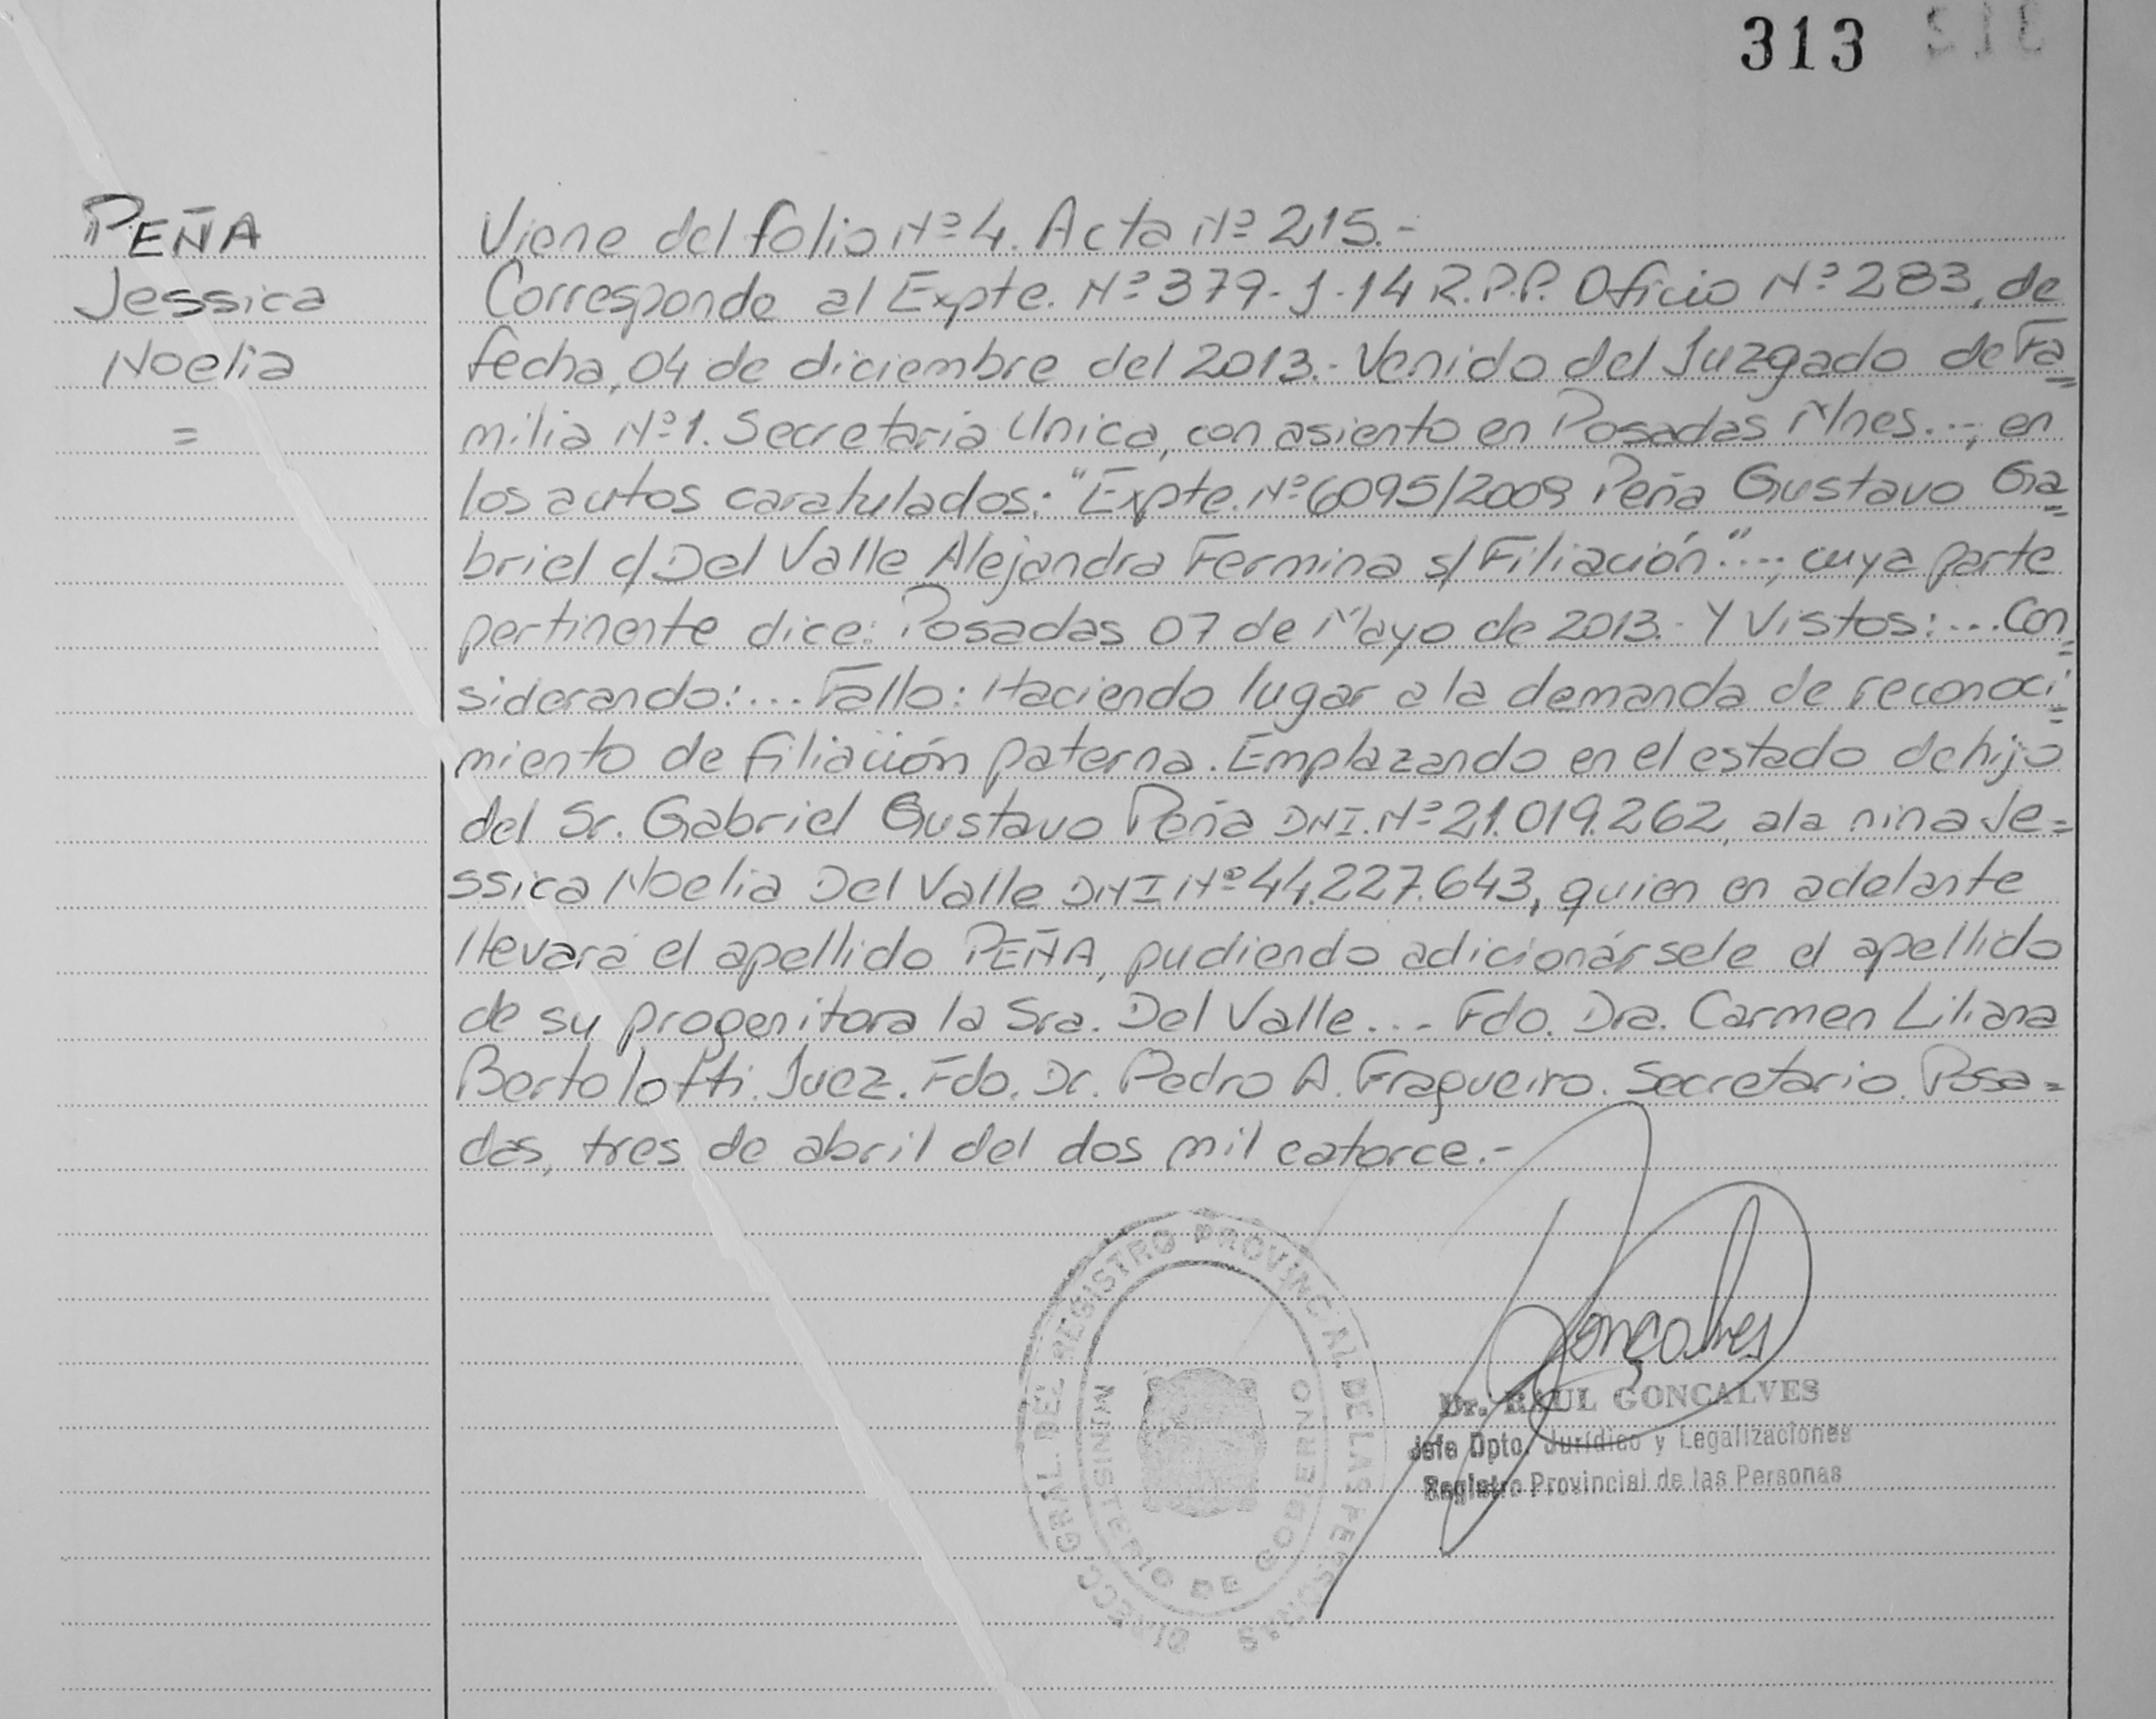 313
PEÑA
Jessica
Noelia
=
Viene del folio Nº 4. Acta Nº 215.-
Corresponde al Expte. Nº 379-J-14 R.P.P. Oficio Nº 283, de
fecha, 04 de diciembre del 2013.- Venido del Juzgado de Fa=
milia Nº 1. Secretaría Unica, con asiento en Posadas Mnes...-, en
los autos caratulados: "Expte. Nº 6095/2009 Peña Gustavo Ga=
briel c/ Del Valle Alejandra Fermina s/ Filiación"...-; cuya parte
pertinente dice: Posadas 07 de Mayo de 2013.- Y Vistos:... Con=
siderando:... Fallo: Haciendo lugar a la demanda de reconoci=
miento de filiación paterna. Emplazando en el estado de hijo
del Sr. Gabriel Gustavo Peña DNI. Nº 21.019.262, a la nina Je=
ssica Noelia Del Valle DNI Nº 44.227.643, quien en adelante
llevará el apellido PEÑA, pudiendo adicionársele el apellido
de su progenitora la Sra. Del Valle... Fdo. Dra. Carmen Liliana
Bertolotti. Juez. Fdo. Dr. Pedro A. Fragueiro. Secretario. Posa=
das, tres de abril del dos mil catorce.-
DIRECC. GRAL. DEL REGISTRO PROVINCIAL DE LAS PERSONAS
MINISTERIO DE GOBIERNO
Gonçalves
Dr. RAUL GONCALVES
Jefe Dpto. Jurídico y Legalizaciones
Registro Provincial de las Personas